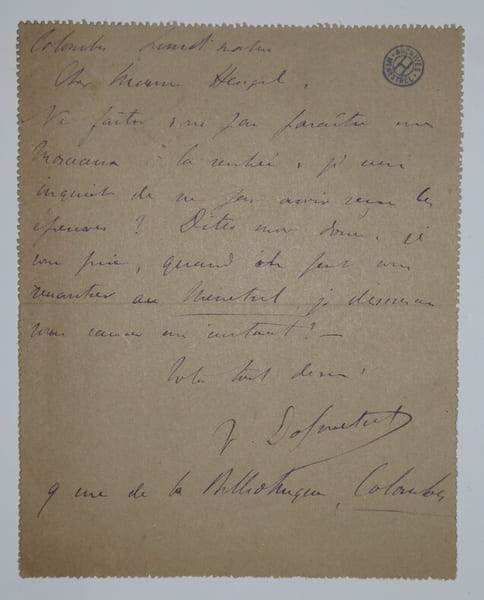 Colombes Lundi matin
Cher Monsieur Heugel,
Ne faites vous pas paraître mes
morceaux à la rentrée, je suis
inquiet de ne pas avoir reçu les
épreuves ? Dites moi donc, je
vous prie, quand on peut vous
rencontrer au Menestrel, je désirerais
vous causer un instant ? —
Votre tout dévoué
9 rue de la Bibliothèque, Colombes
ARCHIVES
MENESTREL